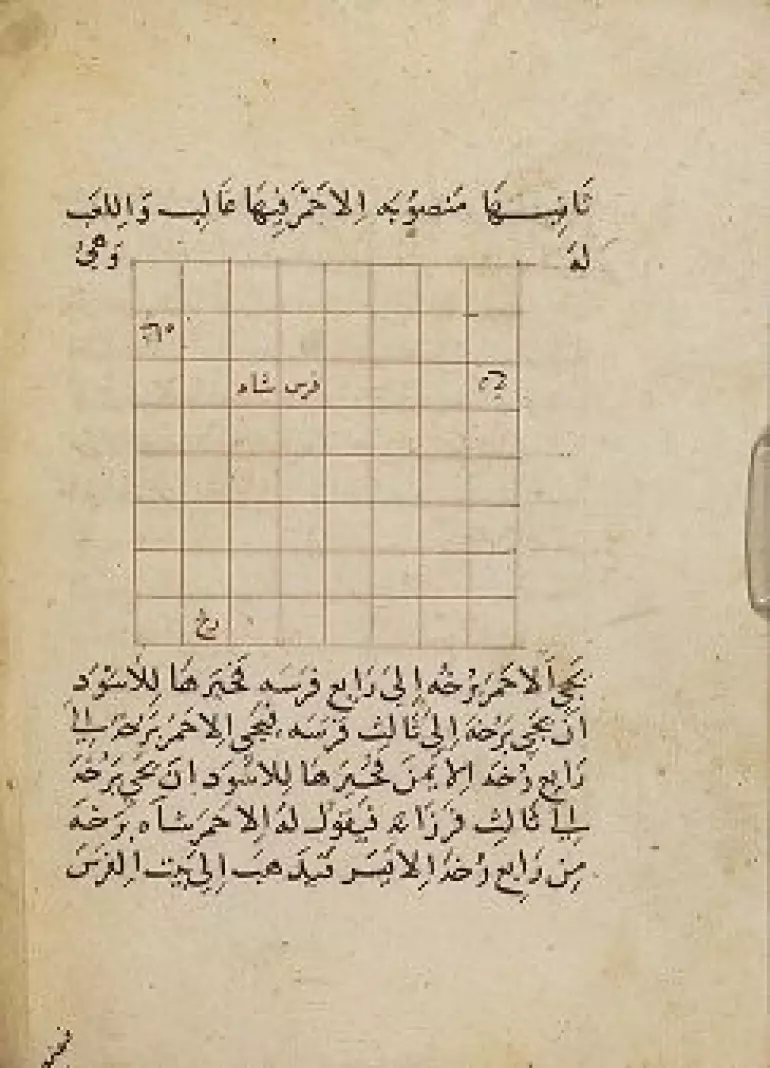 ثَانِيـهَا مَنصوُبه اِلاحمَرُ فِيهَا غَالب وَاللعب
لهُ وَهىَ
شاه
فرس شاه
رخ
يجَى اَلاحمَر برُخه اِلىَ رَابع فرسَه فخيَرهَا لِلاسْوَد
اَن يجَى برَخهَ اِلىَ ثالِث فرَسَه فيَجى اِلاحمَر برَخهَ الي
رَابع رُخهَ اِلايمَن فخيَرهَا لِلاسْوَد اَن يجَى برُخهَ
الي ثالث فرزَانه فيَقولُ لهُ اِلاحمَر شاه برَخهَ
مِن رَابع رُخهُ اِلايسَر فيَذهبَ اِلىَ بيَت اِلفرَسَ